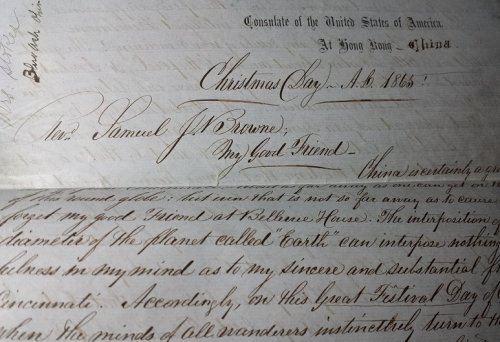 Consulate of the United States of America.
At Hong Kong - China
Christmas Day - A.D. 1865:
Revd. Samuel J N Browne,
My Good Friend -
China is certainly a
of this round globe: but even that is not so far away as to cause
forget my good friend at Bellevue House. The interposition of
diameter of the planet called "Earth" can interpose nothing
fulness in my mind as to my sincere and substantial
Cincinnati. Accordingly, on this Great Festival Day of
when the minds of all wanderers instinctively turn to the